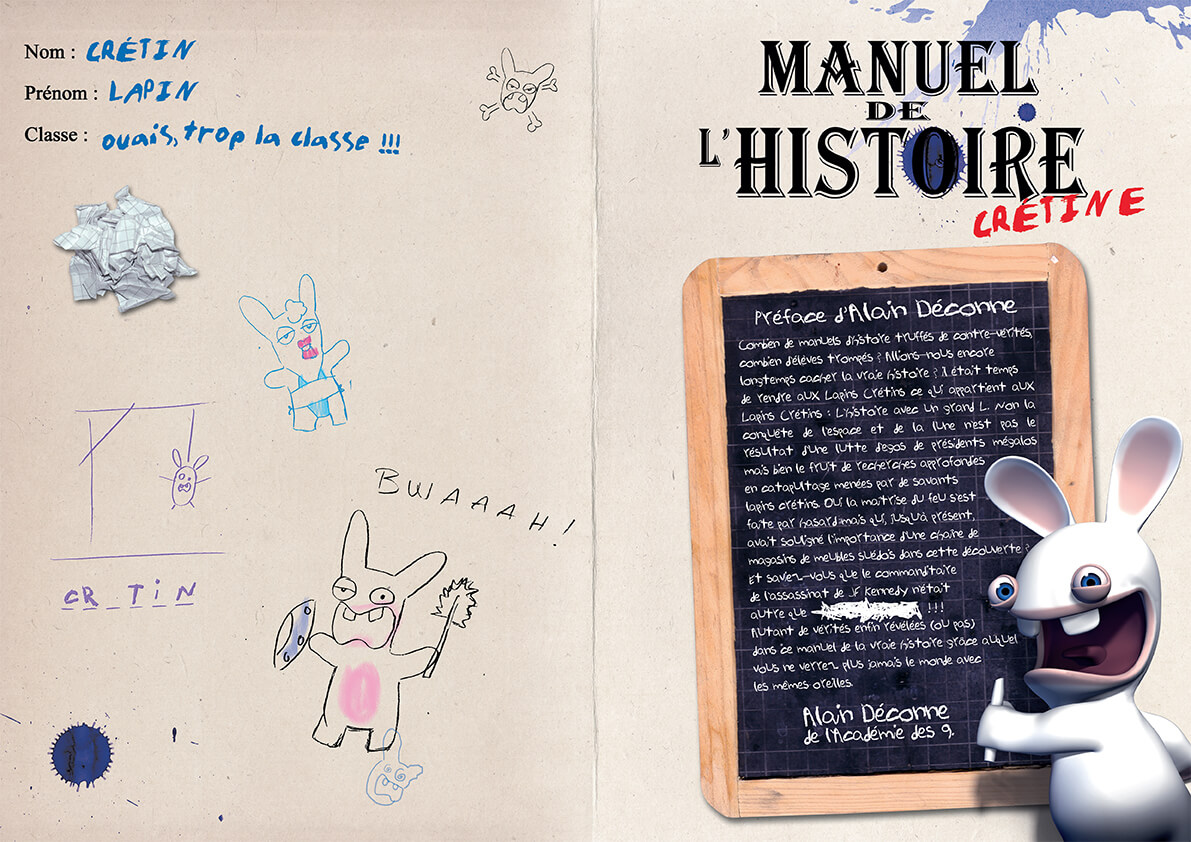 Nom : CRÉTIN
Prénom : LAPIN
Classe : ouais, trop la classe !!!
CR_TIN
BWAAAH !
MANUEL
DE
L'HISTOIRE
CRÉTINE
Préface d'Alain Déconne
Combien de manuels d'histoire truffés de contre-vérités,
combien d'élèves trompés ? Allions-nous encore
longtemps cacher la vraie histoire ? Il était temps
de rendre aux Lapins Crétins ce qui appartient aux
Lapins Crétins : L'histoire avec un grand L. Non la
conquête de l'espace et de la lune n'est pas le
résultat d'une lutte d'egos de présidents mégalos
mais bien le fruit de recherches approfondies
en catapultage menées par de savants
lapins crétins. OU la maîtrise du feu s'est
faite par hasard mais qui, jusqu'à présent,
avait souligné l'importance d'une chaîne de
magasins de meubles suédois dans cette découverte ?
Et savez-vous que le commanditaire
de l'assassinat de JF Kennedy n'était
autre que !!!
Autant de vérités enfin révélées (ou pas)
dans ce manuel de la vraie histoire grâce auquel
vous ne verrez plus jamais le monde avec
les mêmes oreilles.
Alain Déconne
de l'Académie des 9.